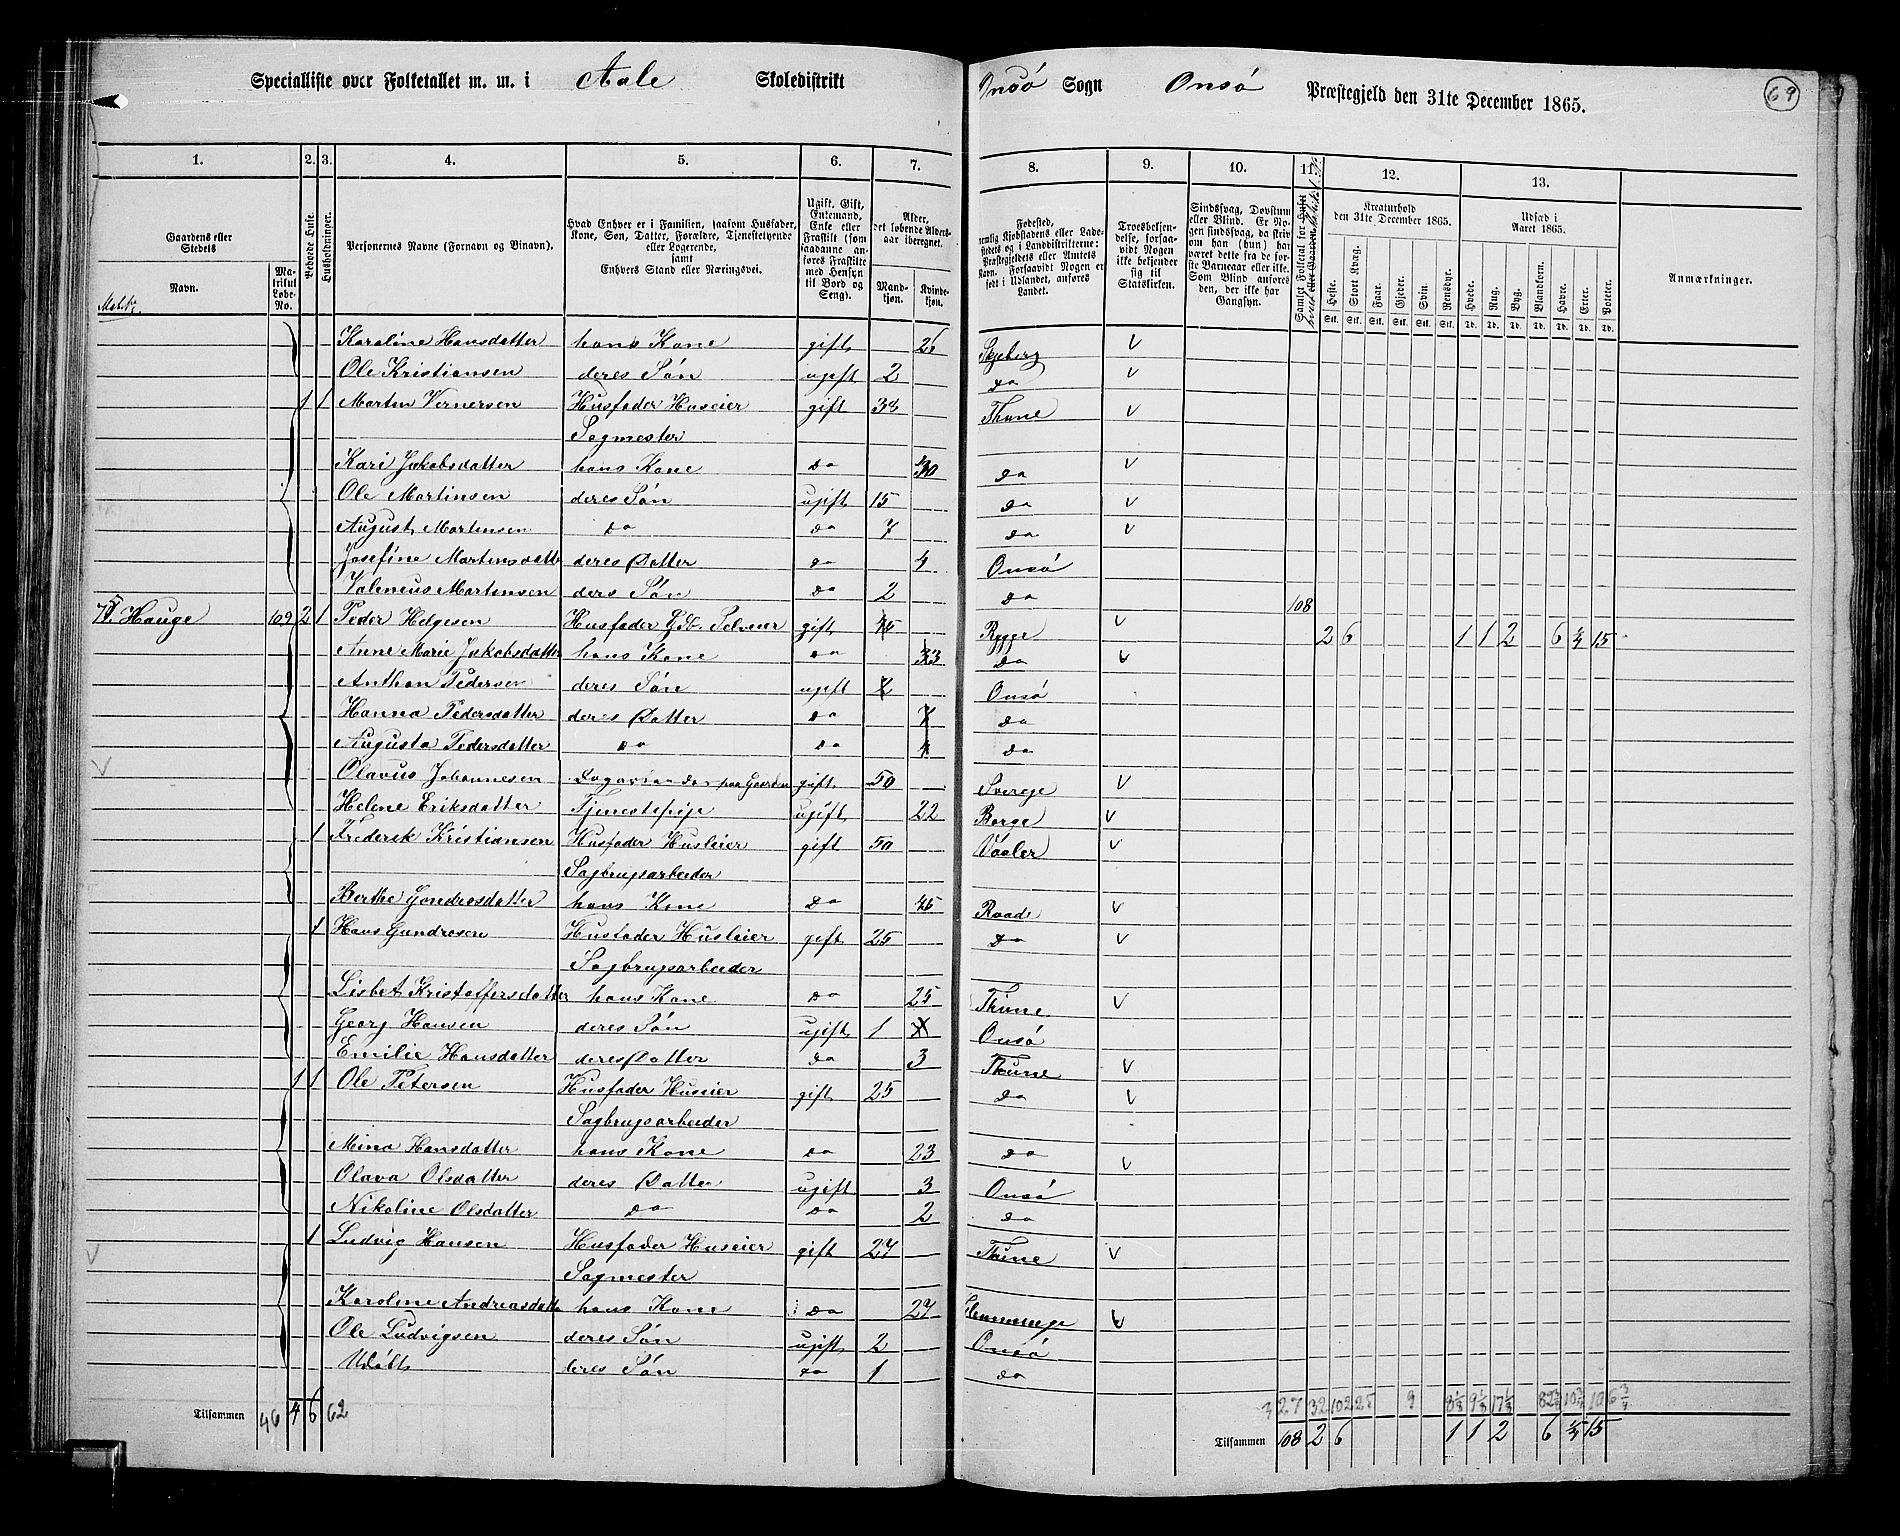 Specialliste over Folketallet m. m. i Aale Skoledistrikt Onsö Sogn Onsö Præstegjeld den 31te December 1865. 69
1. 2. 3. 4. 5. 6. 7. 8. 9. 10. 11. 12. 13.
Gaardens eller Stedets
Navn. Matrikul Løbe-No.
Beboede Huse.
Husholdninger.
Personernes Navne (Fornavn og Tilnavn).
Hvad Enhver er i Familien, saasom Husfader, Kone, Søn, Datter, Forældre, Tjenestetyende eller Logerende, samt Enhvers Stand eller Næringsvei.
Ugift, Gift, Enkemand, Enke eller Fraskilt (som saadanne anføres Fraskilte med Hensyn til Bord og Seng).
Alder, det løbende Alders-aar iberegnet.
Mandkjøn. Kvindekjøn.
Fødested,
Troesbekjendelse, forsaavidt Nogen ikke bekjender sig til Statskirken.
Kreaturhold den 31te December 1865.
Udsæd i Aaret 1865.
Heste. Stort Kvæg. Faar. Gjeder. Svin. Rensdyr. Hvede. Rug. Byg. Blandkorn. Havre. Erter. Poteter.
Anmærkninger.
Karoline Hansdatter hans Kone gift 26 Skjeberg v
Ole Kristiansen deres Søn ugift 2 Do v
1 1 Martin Vernersen Husfader Huseier gift 38 Thune v
Sagmester
Kari Jakobsdatter hans Kone Do 30 Do v
Ole Martinsen deres Søn ugift 15 Do v
August Martinsen Do Do 7 Do v
Josefine Martinsdatt deres Datter Do 4 Onsö
Valeneus Martinsen ders Søn Do 2 Do 108
Hauge 109 2 1 Peder Helgesen Husfader Gdb. Selveier gift 45 Rygge v 2 6 1 1 2 6 1/4 15
Anne Marie Jakobsdatter hans Kone Do 33 Do v
Anthon Pedersen deres Søn ugift 2 Onsö
Hanna Pedersdatter deres Datter Do 7 Do
Augusta Pedersdatter Do Do 4 Do
Olavus Johannesen paa Gaarden gift 50 Sverige v
Helene Eriksdatter Tjenestepige ugift 22 Borge v
1 Frederik Kristiansen Husfader Husleier gift 50 Vaaler v
Sagbrugsarbeider
Berthe Gundrosdatter hans Kone Do 45 Raade v
1 Hans Gundrosen Husfader Husleier gift 25 Do v
Sagbrugsarbeider
Lisbet Kristoffersdatter hans Kone Do 25 Thune v
Georg Hansen deres Søn ugift 1 Onsö
Emilie Hansdatter deres Datter Do 3 Thune v
1 1 Ole Petersen Husfader Huseier gift 25 Do v
Sagbrugsarbeider
Mina Hansdatter hans Kone Do 23 Do v
Olava Olsdatter deres Datter ugift 3 Onsö
Nikoline Olsdatter Do Do 2 Do
1 Ludvig Hansen Husfader Huseier gift 27 Thune v
Sagmester
Karoline Andreasdatt hans Kone Do 27 Glemminge v
Ole Ludvigsen deres Søn ugift 2 Onsö
Udöbt deres Søn Do 1 Do
Tilsammen 46 4 6 62
Tilsammen 108 2 6 1 1 2 6 1/4 15